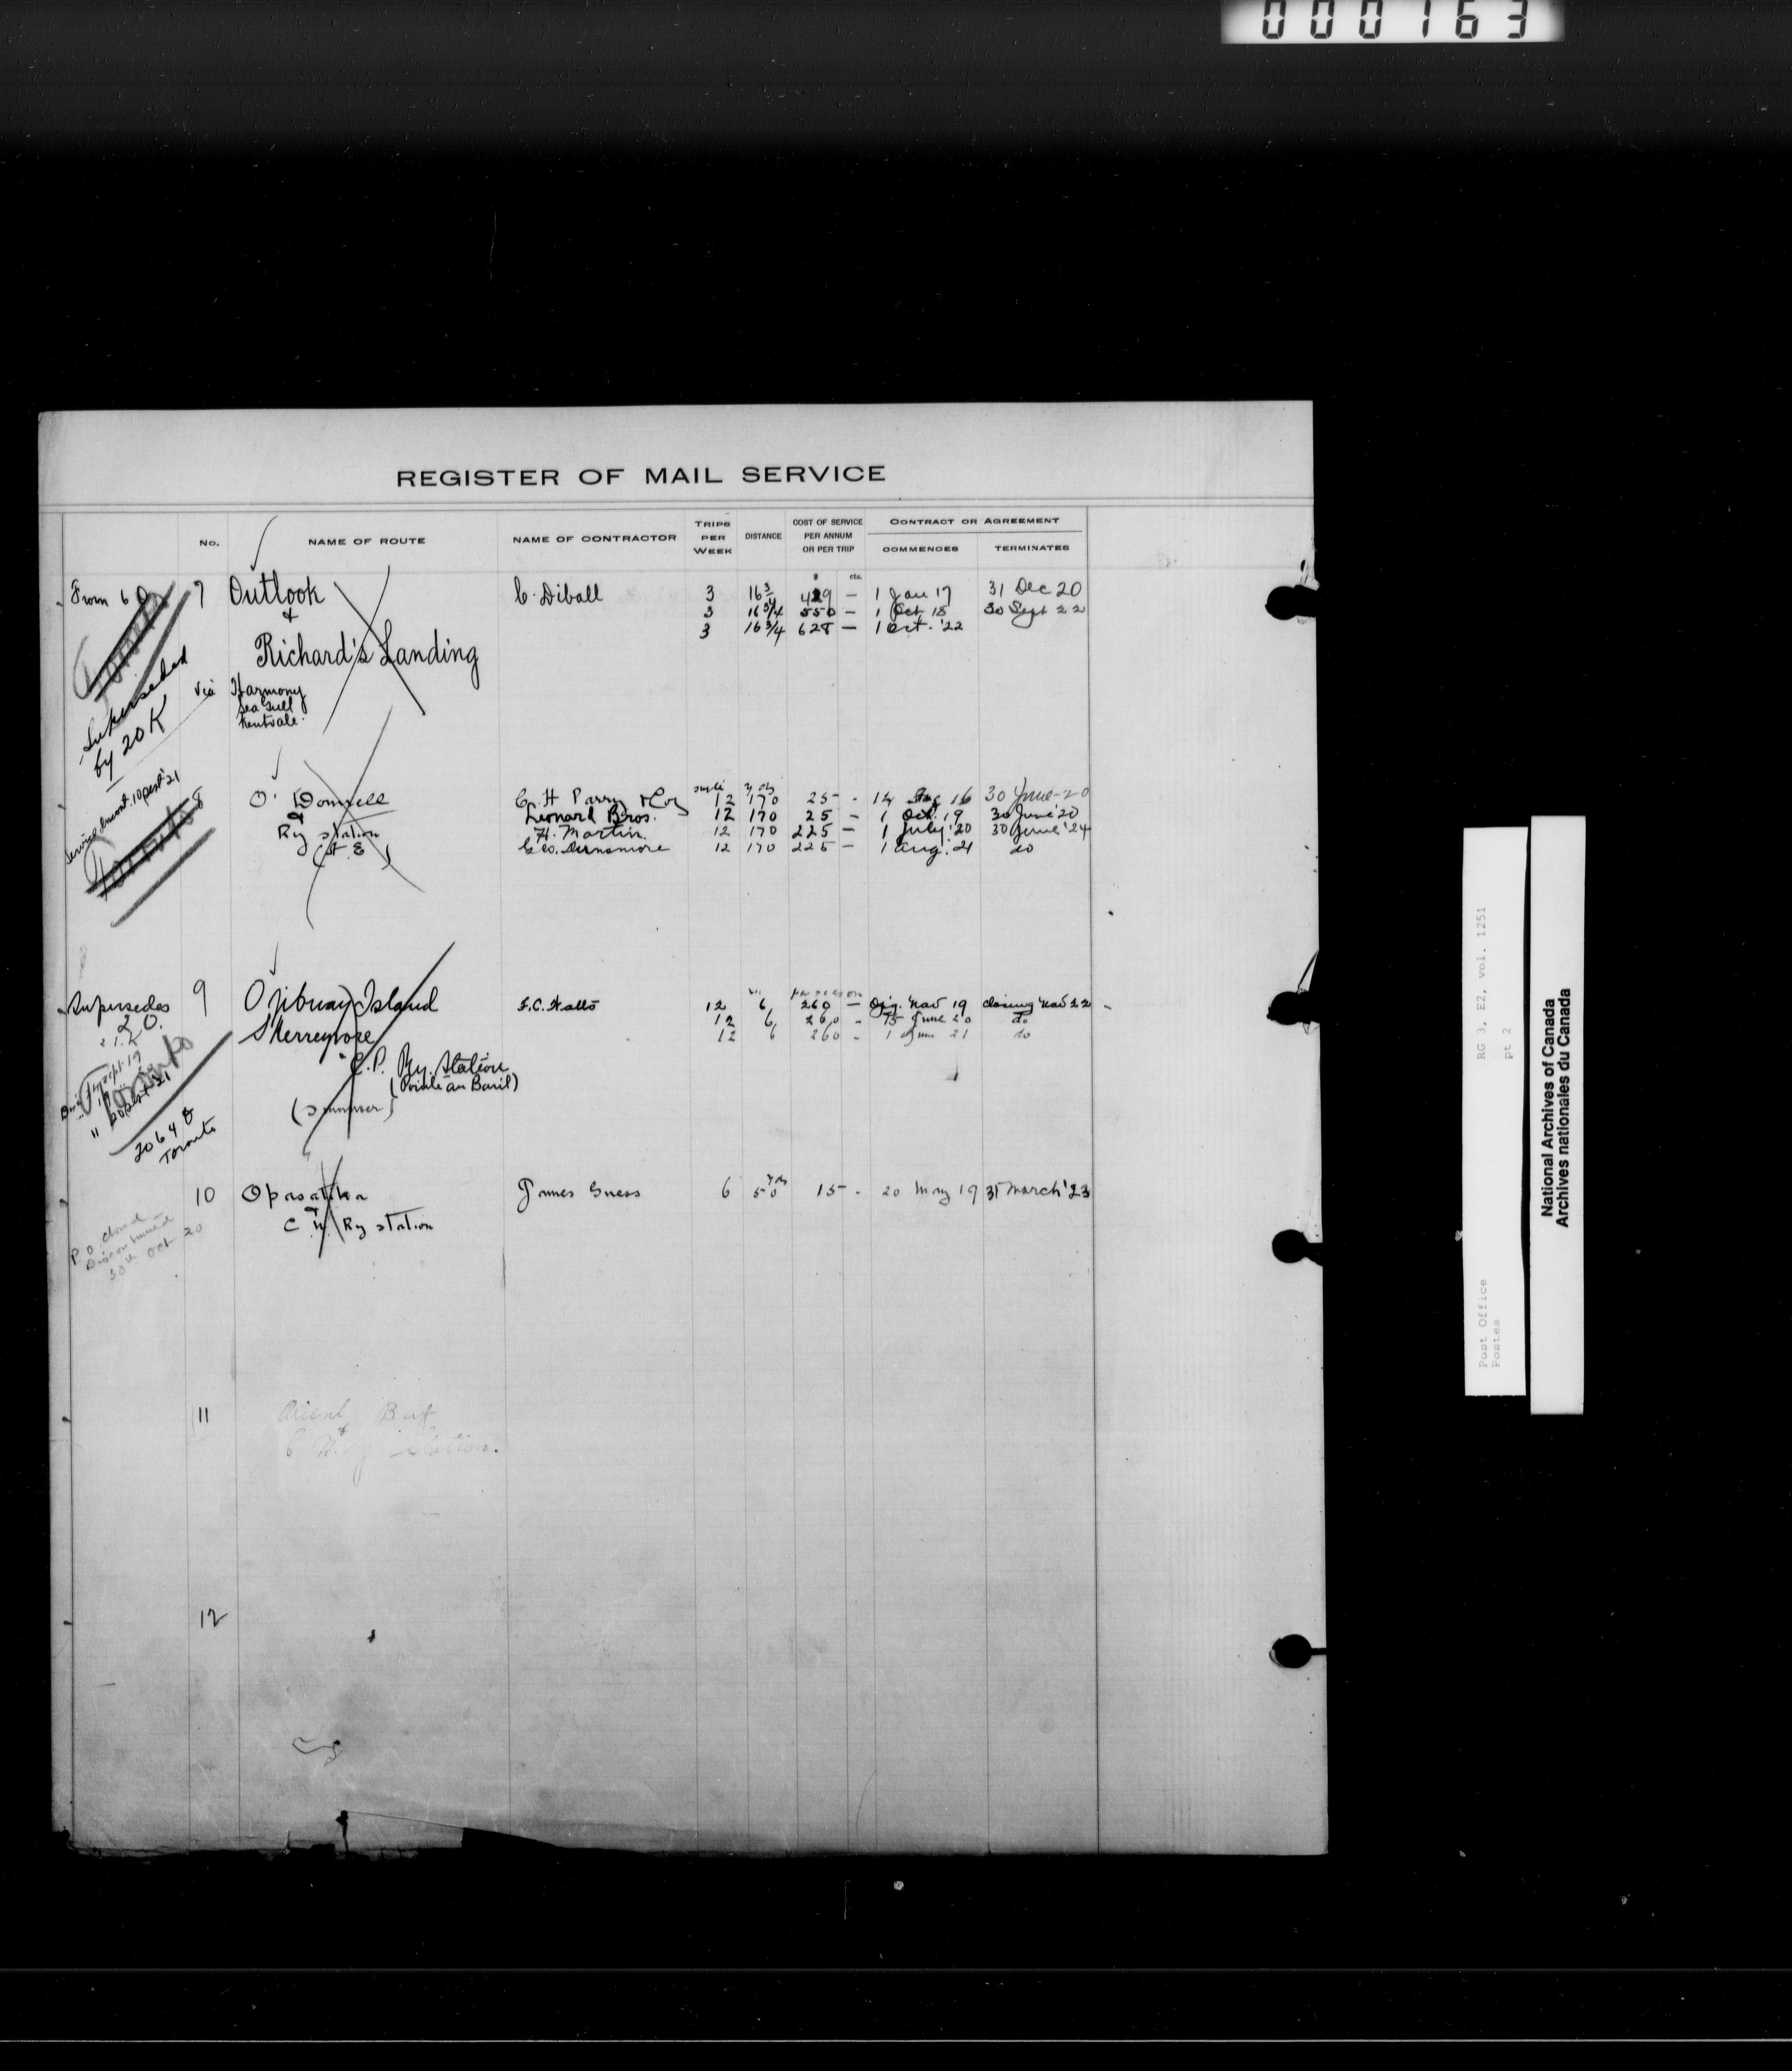 000163
REGISTER OF MAIL SERVICE
No.
NAME OF ROUTE
NAME OF CONTRACTOR
TRIPS PER WEEK
DISTANCE
COST OF SERVICE PER ANNUM OR PER TRIP
CONTRACT OR AGREEMENT
COMMENCES
TERMINATES
$ cts.
From 6 O 7 Outlook C. Diball 3 16 3/4 429 — 1 Jan 17 31 Dec 20
& 3 16 3/4 550 — 1 Oct 18 30 Sept 22
3 16 3/4 628 — 1 Oct. '22
Richard's Landing
Superseded
by 20 K
via Harmony
Sea Gull
Kentvale.
Service discont. 10 Sept '21
8 O'Donnell C. H Parry & Coy 12 170 25 - 14 Aug 16 30 June 20
& Leonard Bros. 12 170 25 — 1 Oct. 19 30 June '20
Ry station H. Martin. 12 170 225 — 1 July '20 30 June '24
Geo. Dunsmore 12 170 225 — 1 Aug. 21 do
Toronto
Supersedes 9 Ojibway Island 12 6 260 — Nav 19 closing Nav 22
2 O. 12 6 260 - 15 June 20 do
21. K Sherreyvore 12 6 260 - 1 June 21 do
C.P. Ry. Station
(Pointe au Baril)
(summer)
Toronto
2064 O
Toronto
10 Opasatika James Guess 6 50 yds 15 - 20 May 19 31 March '23
&
C N Ry station
P.O. closed
Discontinued
30th Oct 20
11 Orient Bay
&
C. N. Ry Station.
12
Post Office RG 3, E2, vol. 1251
Postes pt 2
National Archives of Canada
Archives nationales du Canada